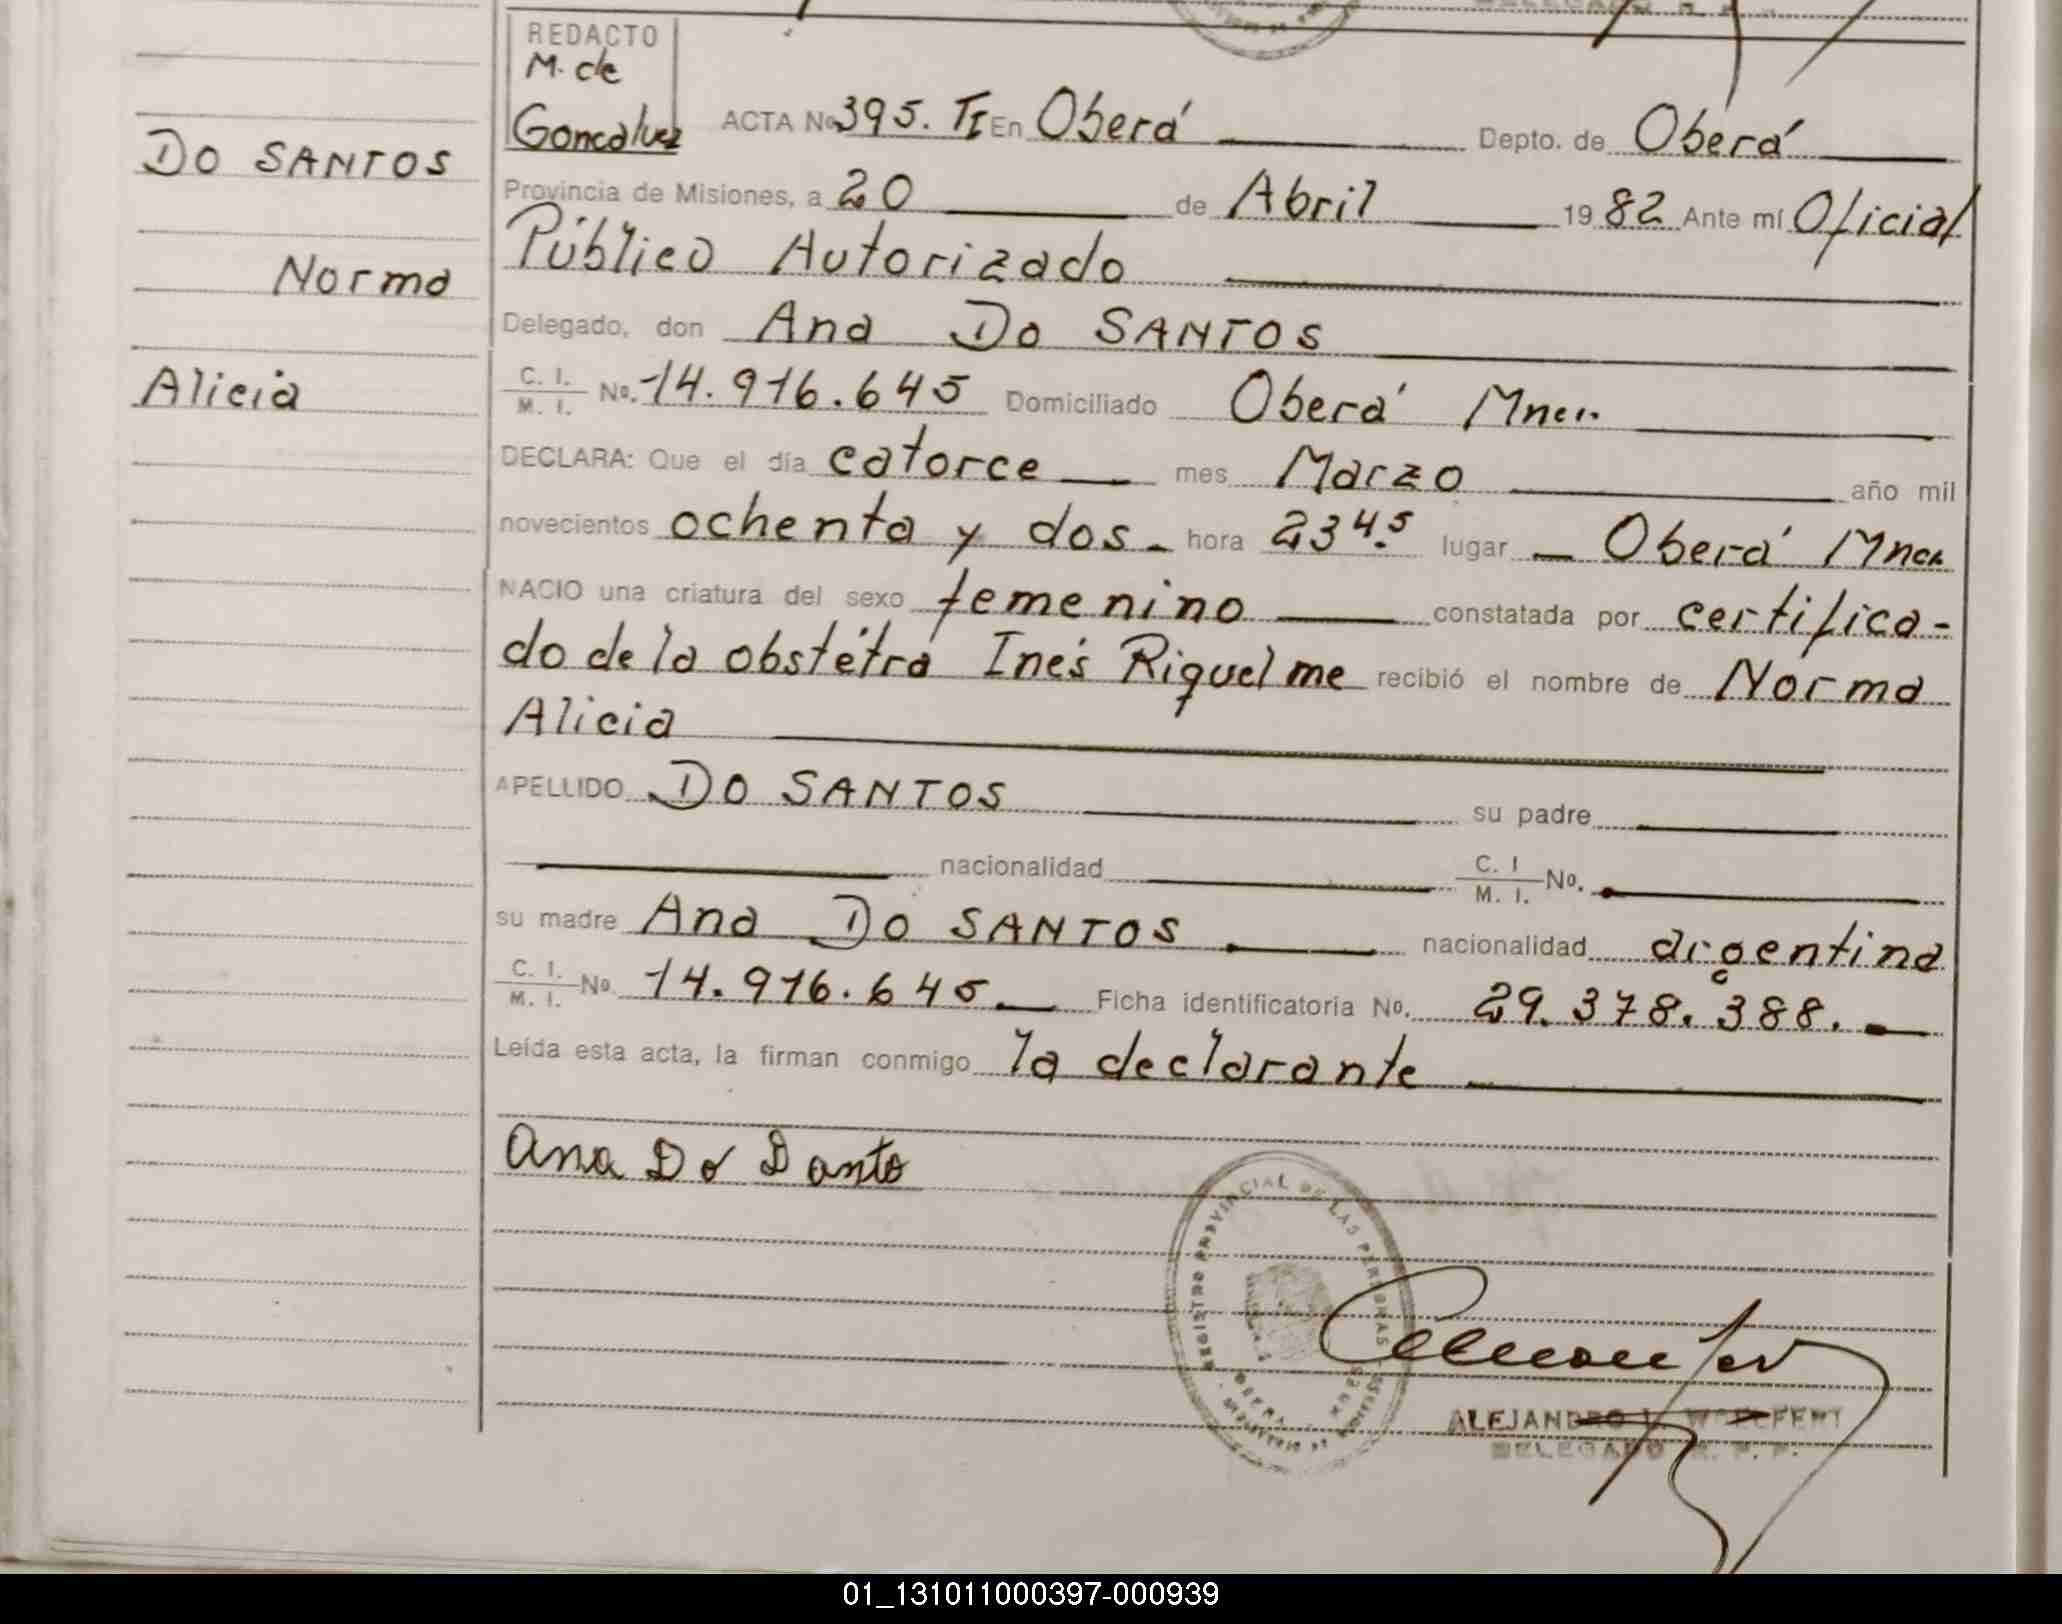 REDACTO
M. de
Goncalvez
ACTA No 395. TI En Oberá Depto. de Oberá
DO SANTOS
Provincia de Misiones, a 20 de Abril 1982 Ante mí Oficial
Público Autorizado
Norma
Delegado, don Ana Do SANTOS
Alicia
C. I. M. I. No. 14.916.645 Domiciliado Oberá Mnes.
DECLARA: Que el día catorce mes Marzo año mil
novecientos ochenta y dos hora 23 45 lugar Oberá Mnes
NACIO una criatura del sexo femenino constatada por certifica-
do de la obstétra Inés Riquelme recibió el nombre de Norma
Alicia
APELLIDO DO SANTOS su padre
nacionalidad C. I M. I. No.
su madre Ana Do SANTOS nacionalidad argentina
C. I. M. I. No. 14.916.645. Ficha identificatoria No. 29.378.388.
Leída esta acta, la firman conmigo la declarante
Ana Do Danto
REGISTRO PROVINCIAL DE LAS PERSONAS
ALEJANDRO
DELEGADO R. P. P.
01_131011000397-000939